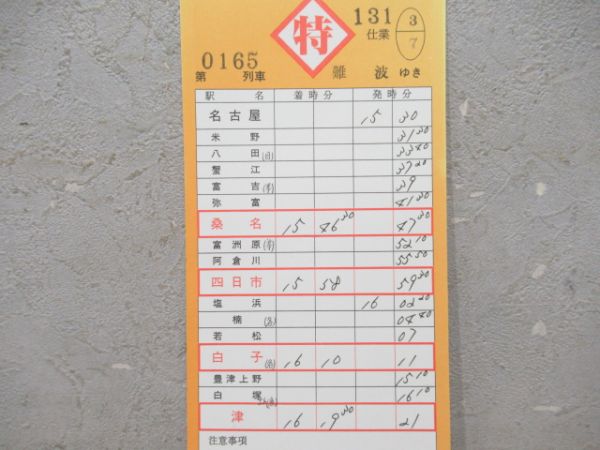 特 131 仕業 3/7
0165
第 列車 難波 ゆき
駅名 着時分 発時分
名古屋 15 30
米野 31 20
八田 33 40
蟹江 37 20
富吉 39
弥富 41 20
桑名 15 46 30 47 30
富洲原 52 10
阿倉川 55 50
四日市 15 58 59 20
塩浜 16 02 20
楠 04 40
若松 07
白子 16 10 11
豊津上野 15 10
白塚 16 10
津 16 19 20 21
注意事項